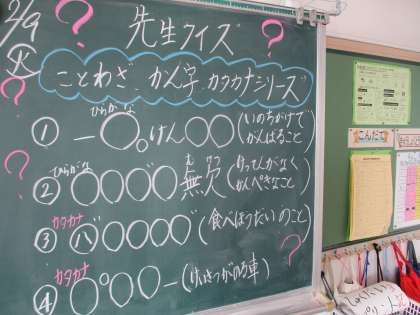 2/9
火
先生クイズ
ことわざ、かん字、カタカナシリーズ
① 一〇。けん〇〇（いのちがけでがんばること）
ひらがな
② 〇〇〇〇無欠（けってんがなくかんぺきなこと）
ひらがな
む けつ
③ バ〇〇〇〇（食べほうだいのこと）
カタカナ
④ 〇〇〇〇ー（けいさつがのる車）
カタカナ
？
こんだて